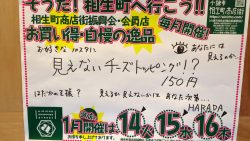 そうだ！相生町へ行こう!!
相生町商店街振興会・会員店 毎月開催！
お買い得・自慢の逸品
お好きなカスタムに
あなたには
見えるか
見えないチーズトッピング!?
150円
はだかの王様？
見えるか見えないかはあなた次第…
HARADA
1月開催は
14火 15水 16木